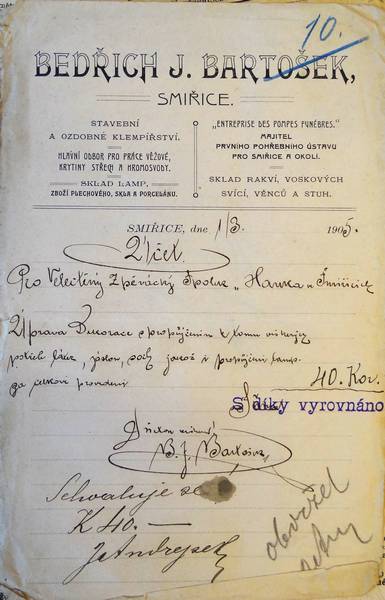 10.
BEDŘICH J. BARTOŠEK,
SMIŘICE.
STAVEBNÍ
A OZDOBNÉ KLEMPÍŘSTVÍ.
HLAVNÍ ODBOR PRO PRÁCE VĚŽOVÉ,
KRYTINY STŘECH A HROMOSVODY.
SKLAD LAMP,
ZBOŽÍ PLECHOVÉHO, SKLA A PORCELÁNU.
„ENTREPRISE DES POMPES FUNÈBRES.“
MAJITEL
PRVNÍHO POHŘEBNÍHO ÚSTAVU
PRO SMIŘICE A OKOLÍ.
SKLAD RAKVÍ, VOSKOVÝCH
SVÍCÍ, VĚNCŮ A STUH.
SMIŘICE, dne 1/3 1905.
Účet
Pro Velectěný Zpěvácký Spolek
Úprava Dekorace s propůjčením k tomu
potřeb látek, jakož i propůjčení lamp
za celkové provedení 40. Kor.
S díky vyrovnáno
B. J. Bartošek
Schvaluje se
K 40.—
JAndrejsek
obdržel